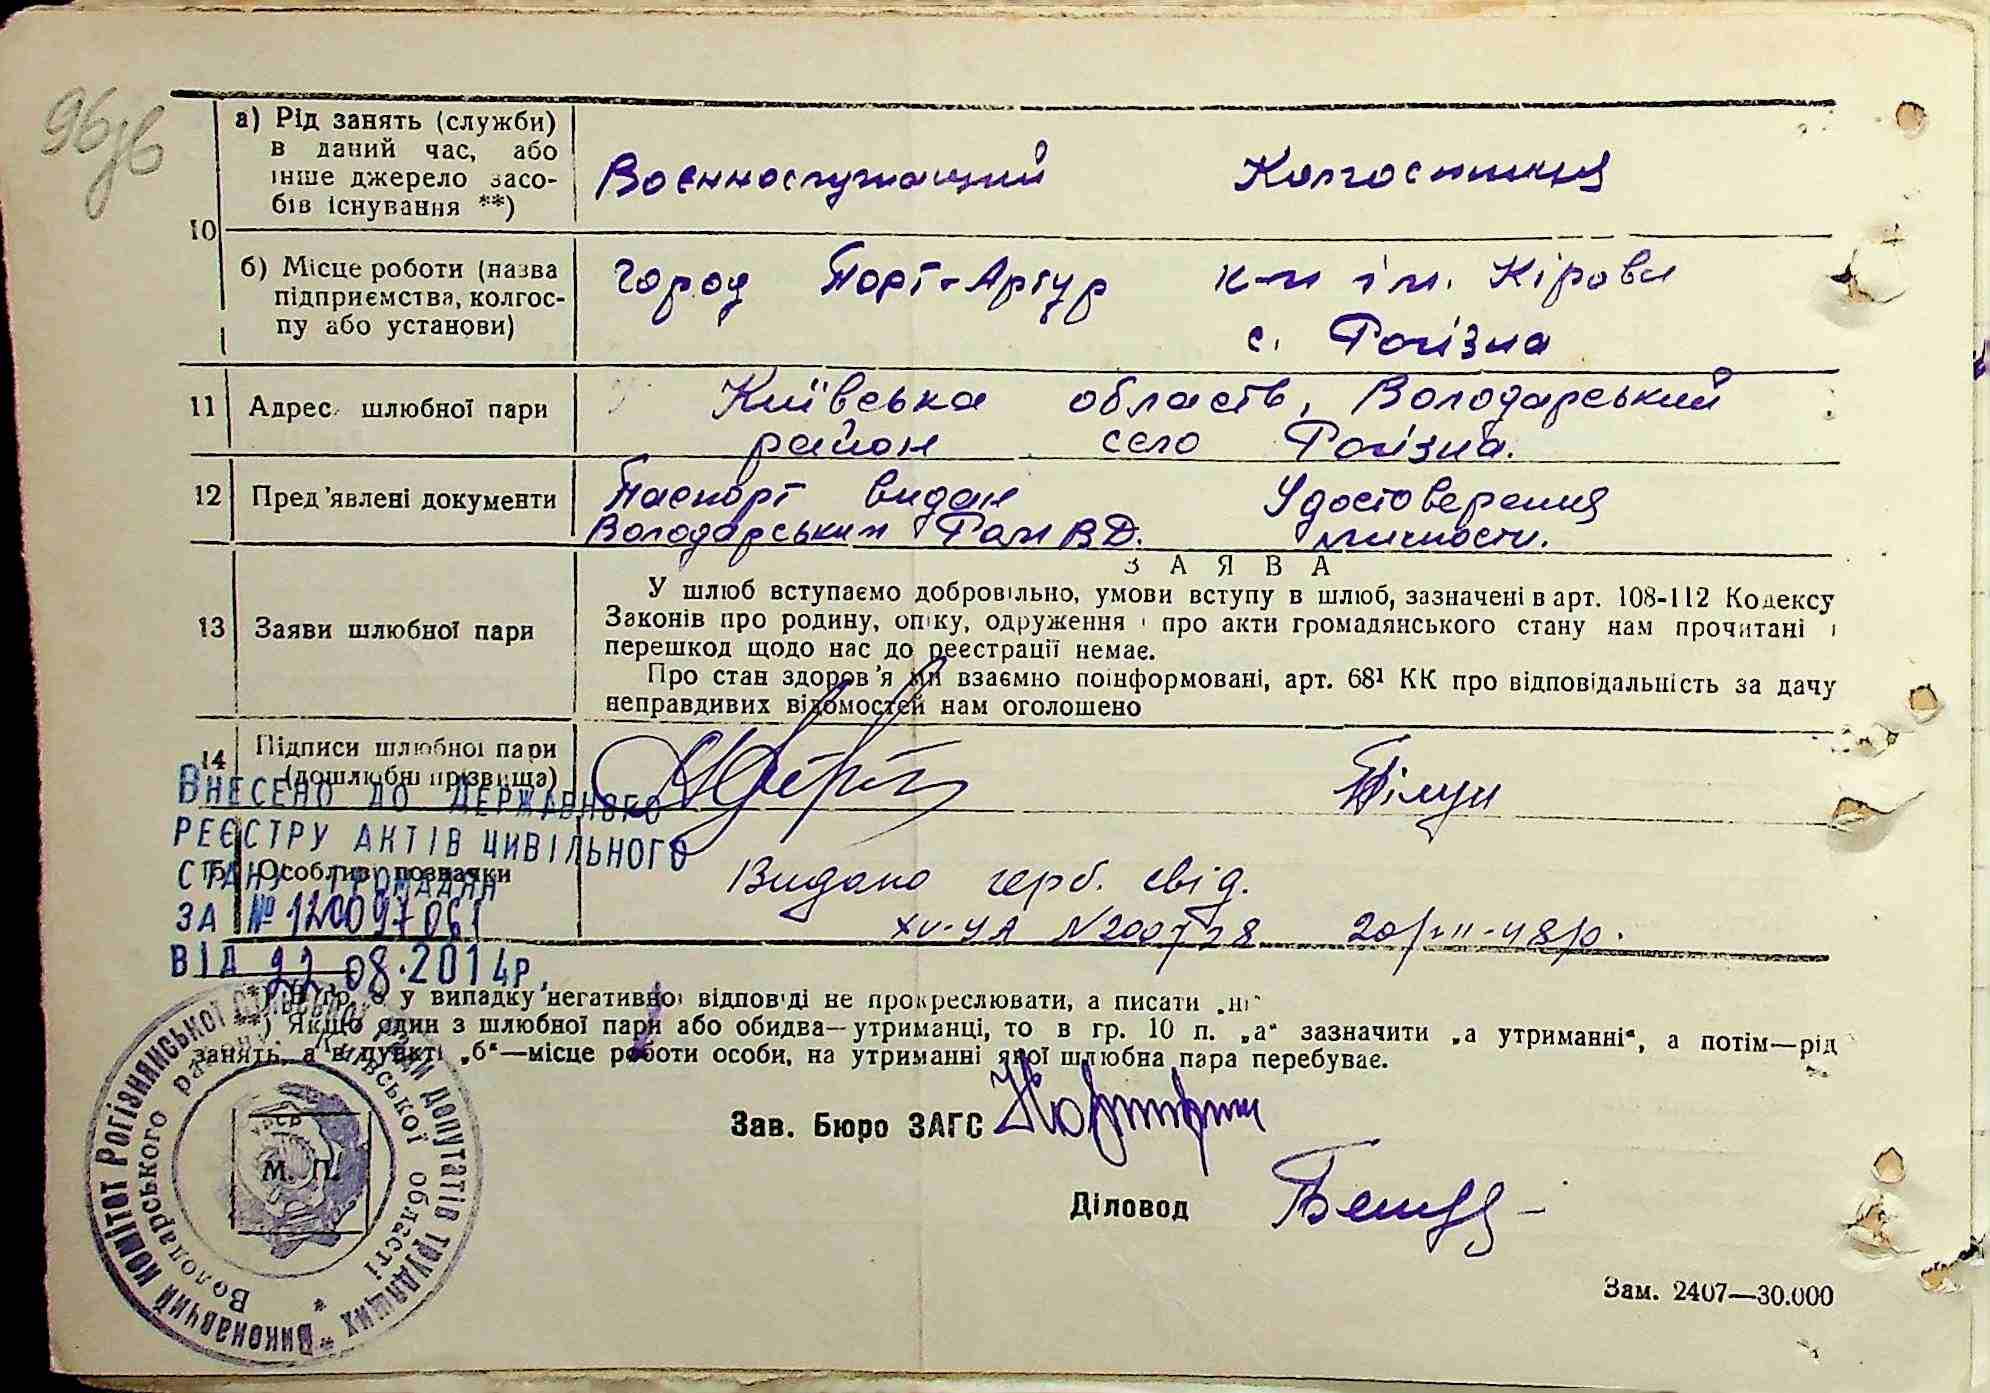 96 зв
10
а) Рід занять (служби)
в даний час, або
інше джерело засо-
бів існування **)
Воєннослужащий Колгоспниця
б) Місце роботи (назва
підприємства, колгос-
пу або установи)
Город Порт-Артур к-п ім. Кірова
с. Рогізна
11 Адрес шлюбної пари
Київська область, Володарський
район село Рогізна.
12 Пред'явлені документи
Паспорт видан Удостоверення
Володарським РайВД. личности.
13 Заяви шлюбної пари
ЗАЯВА
У шлюб вступаємо добровільно, умови вступу в шлюб, зазначені в арт. 108-112 Кодексу
Законів про родину, опіку, одруження і про акти громадянського стану нам прочитані і
перешкод щодо нас до реєстрації немає.
Про стан здоров'я ми взаємно поінформовані, арт. 68¹ КК про відповідальність за дачу
неправдивих відомостей нам оголошено
14 Підписи шлюбної пари
(дошлюбні прізвища)
15 Особливі позначки
Видано герб. свід.
ХV-УА N 200728 20/III-48р.
ВНЕСЕНО ДО ДЕРЖАВНОГО
РЕЄСТРУ АКТІВ ЦИВІЛЬНОГО
СТАНУ ГРОМАДЯН
ЗА №
ВІД 22.08.2014р.
*) В гр. 8 у випадку негативної відповіді не прокреслювати, а писати „ні“
**) Якщо один з шлюбної пари або обидва—утриманці, то в гр. 10 п. „а“ зазначити „а утриманні“, а потім—рід
занять, а в пункті „б“—місце роботи особи, на утриманні якої шлюбна пара перебуває.
Зав. Бюро ЗАГС
Діловод
М. П.
УРСР
Виконавчий комітет Рогізнянської сільської ради депутатів трудящих
Володарського району, Київської області
Зам. 2407—30.000